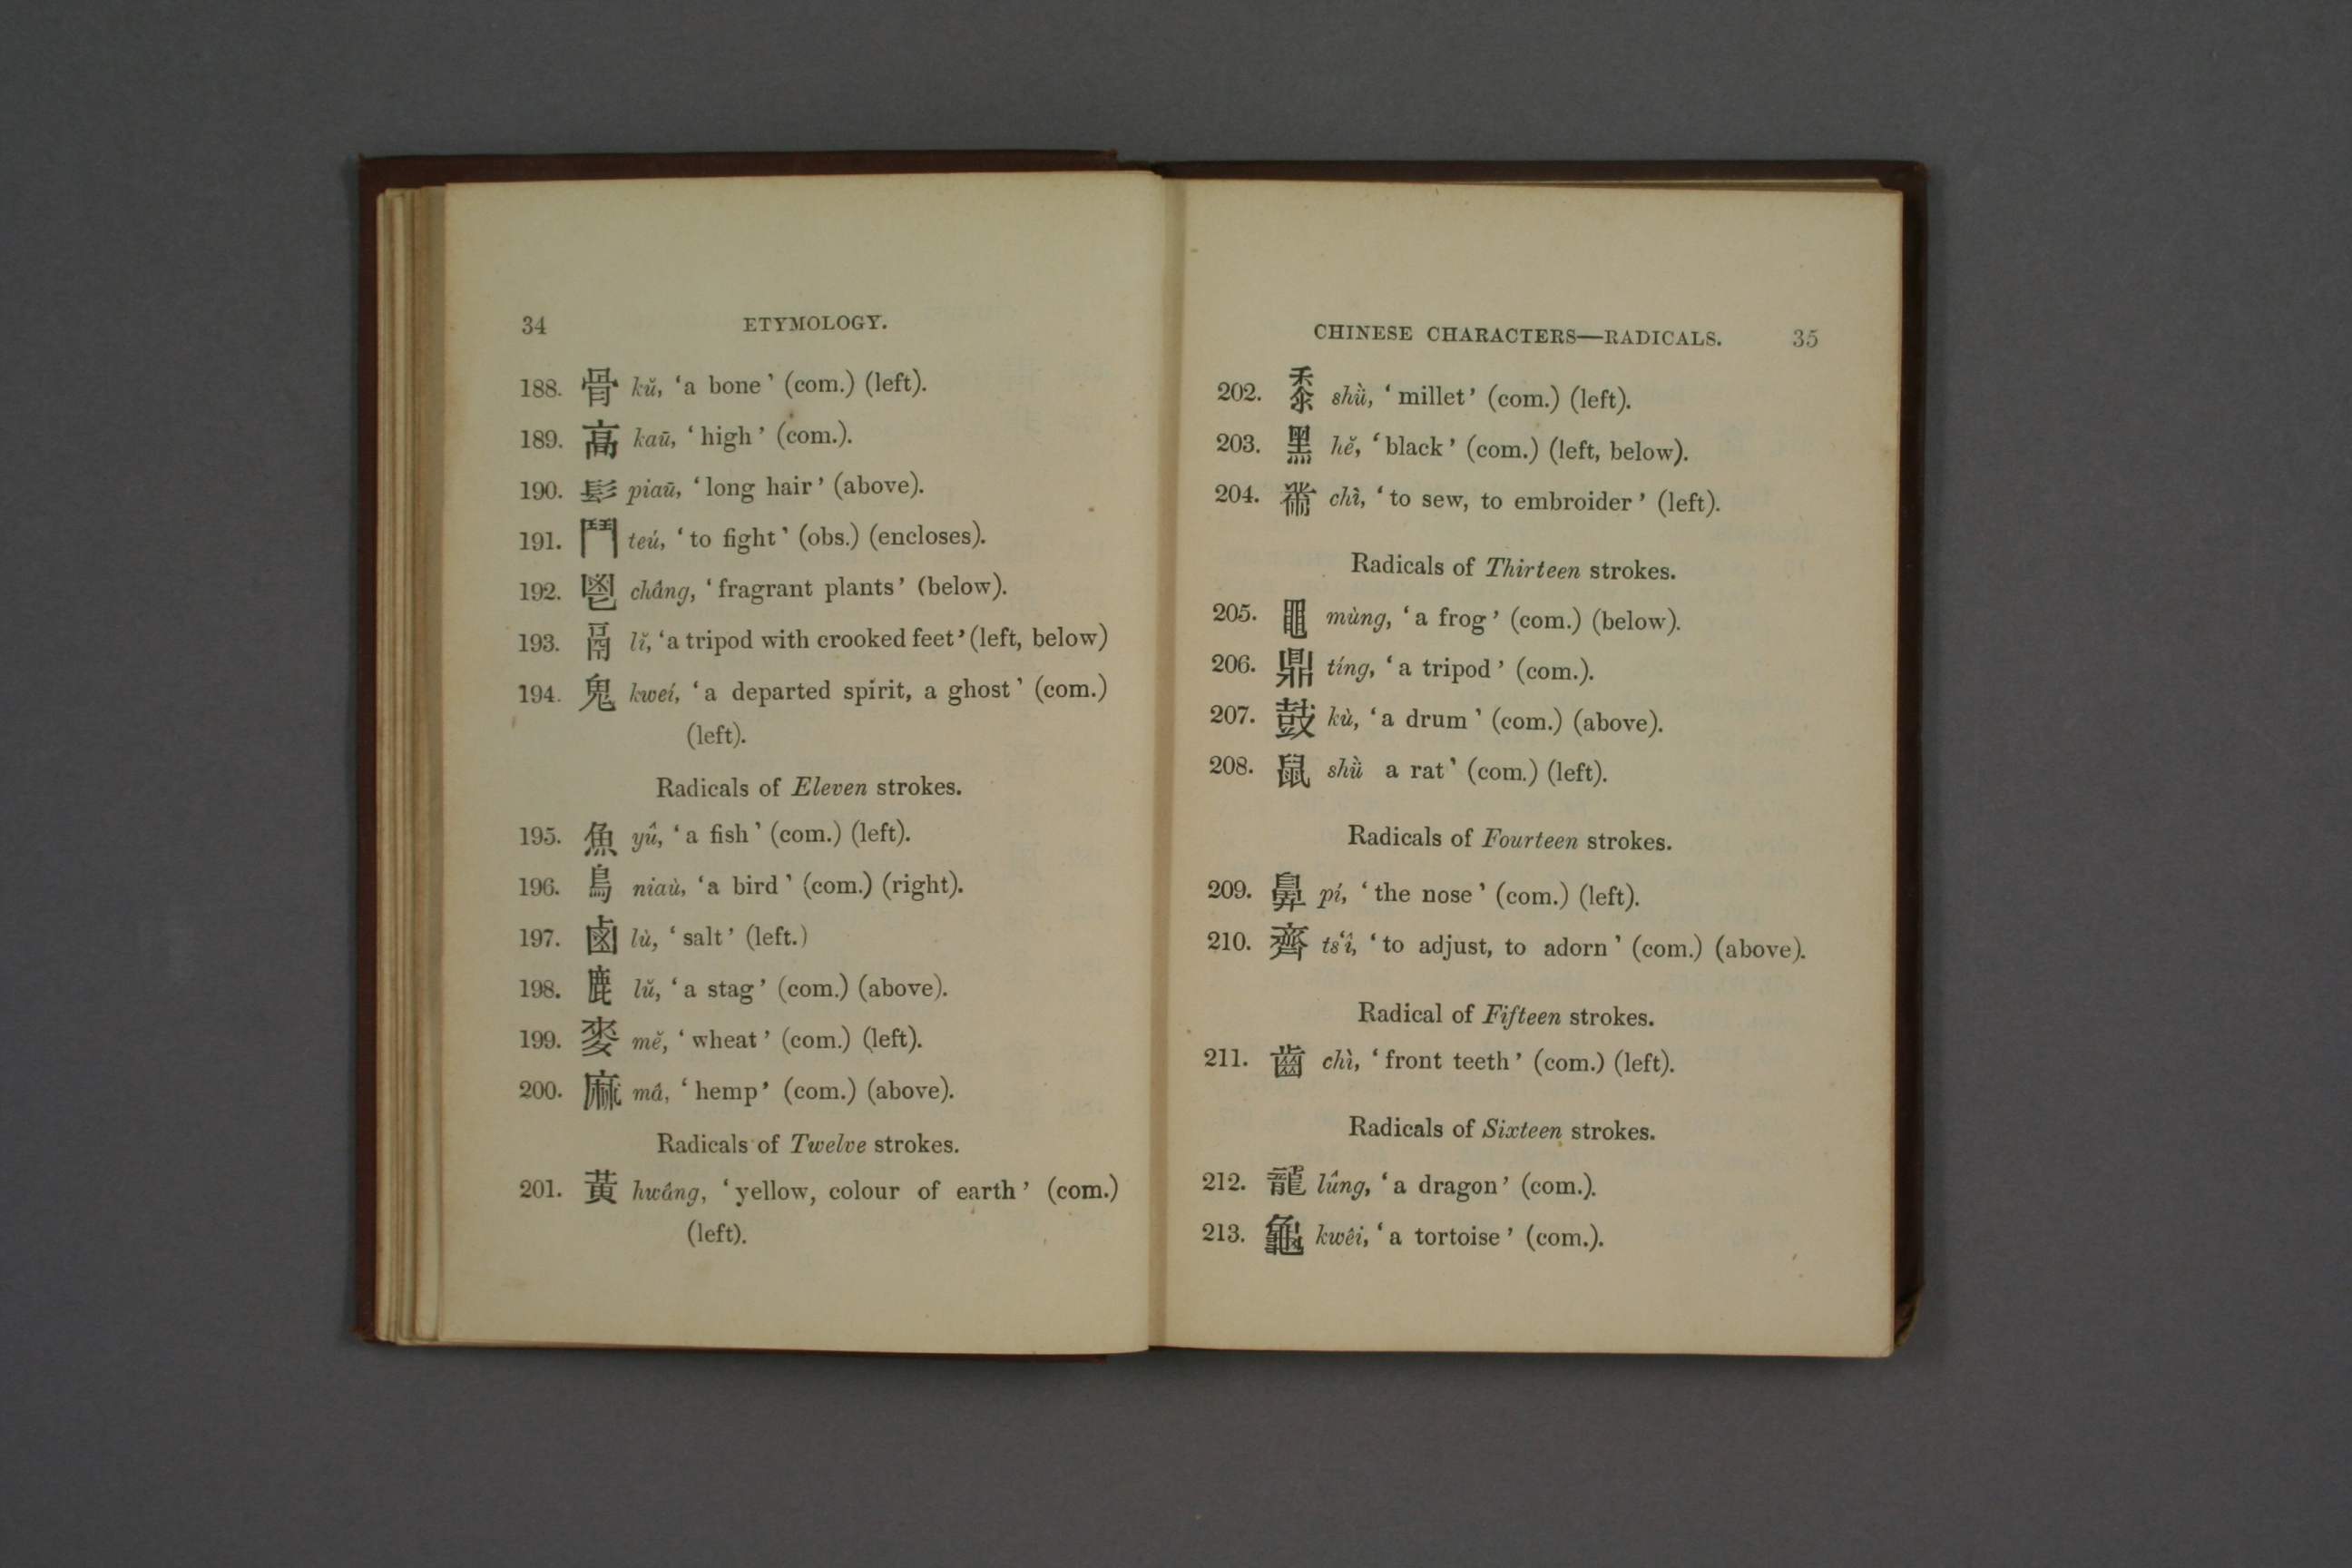 34 ETYMOLOGY.
188. 骨 kŭ, ‘a bone’ (com.) (left).
189. 高 kaū, ‘high’ (com.).
190. 髟 piaū, ‘long hair’ (above).
191. 鬥 teú, ‘to fight’ (obs.) (encloses).
192. 鬯 châng, ‘fragrant plants’ (below).
193. 鬲 lĭ, ‘a tripod with crooked feet’ (left, below)
194. 鬼 kweí, ‘a departed spirit, a ghost’ (com.)
(left).
Radicals of Eleven strokes.
195. 魚 yû, ‘a fish’ (com.) (left).
196. 鳥 niaù, ‘a bird’ (com.) (right).
197. 鹵 lù, ‘salt’ (left.)
198. 鹿 lŭ, ‘a stag’ (com.) (above).
199. 麥 mĕ, ‘wheat’ (com.) (left).
200. 麻 mâ, ‘hemp’ (com.) (above).
Radicals of Twelve strokes.
201. 黃 hwâng, ‘yellow, colour of earth’ (com.)
(left).
CHINESE CHARACTERS—RADICALS. 35
202. 黍 shǜ, ‘millet’ (com.) (left).
203. 黑 hĕ, ‘black’ (com.) (left, below).
204. 黹 chì, ‘to sew, to embroider’ (left).
Radicals of Thirteen strokes.
205. 黽 mùng, ‘a frog’ (com.) (below).
206. 鼎 tíng, ‘a tripod’ (com.).
207. 鼓 kù, ‘a drum’ (com.) (above).
208. 鼠 shǜ a rat’ (com.) (left).
Radicals of Fourteen strokes.
209. 鼻 pí, ‘the nose’ (com.) (left).
210. 齊 ts‘î, ‘to adjust, to adorn’ (com.) (above).
Radical of Fifteen strokes.
211. 齒 chì, ‘front teeth’ (com.) (left).
Radicals of Sixteen strokes.
212. 龍 lûng, ‘a dragon’ (com.).
213. 龜 kwêi, ‘a tortoise’ (com.).